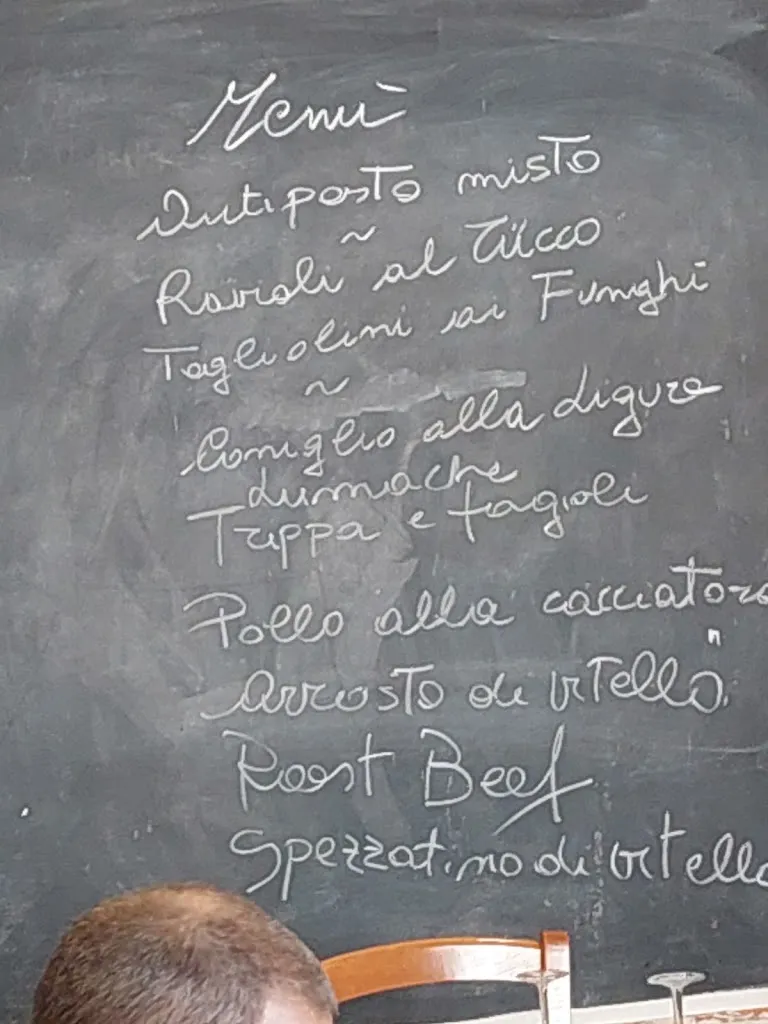 Menù
Antipasto misto
~
Ravioli al Tücco
Tagliolini ai Funghi
~
Coniglio alla Ligure
Lumache
Trippa e fagioli
Pollo alla cacciatora
Arrosto di vitello
Roost Beef
Spezzatino di vitello